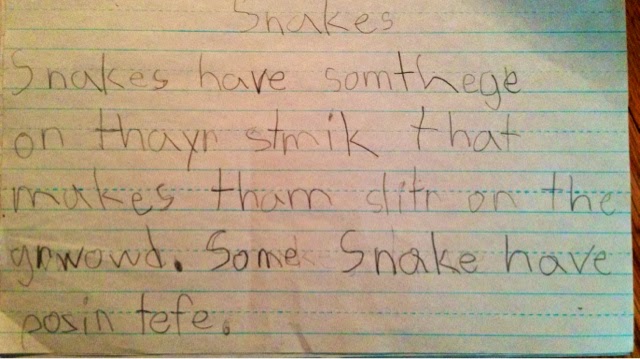 Snakes
Snakes have somthege
on thayr stmik that
makes tham slitr on the
grwowd. Some Snake have
posin tefe.